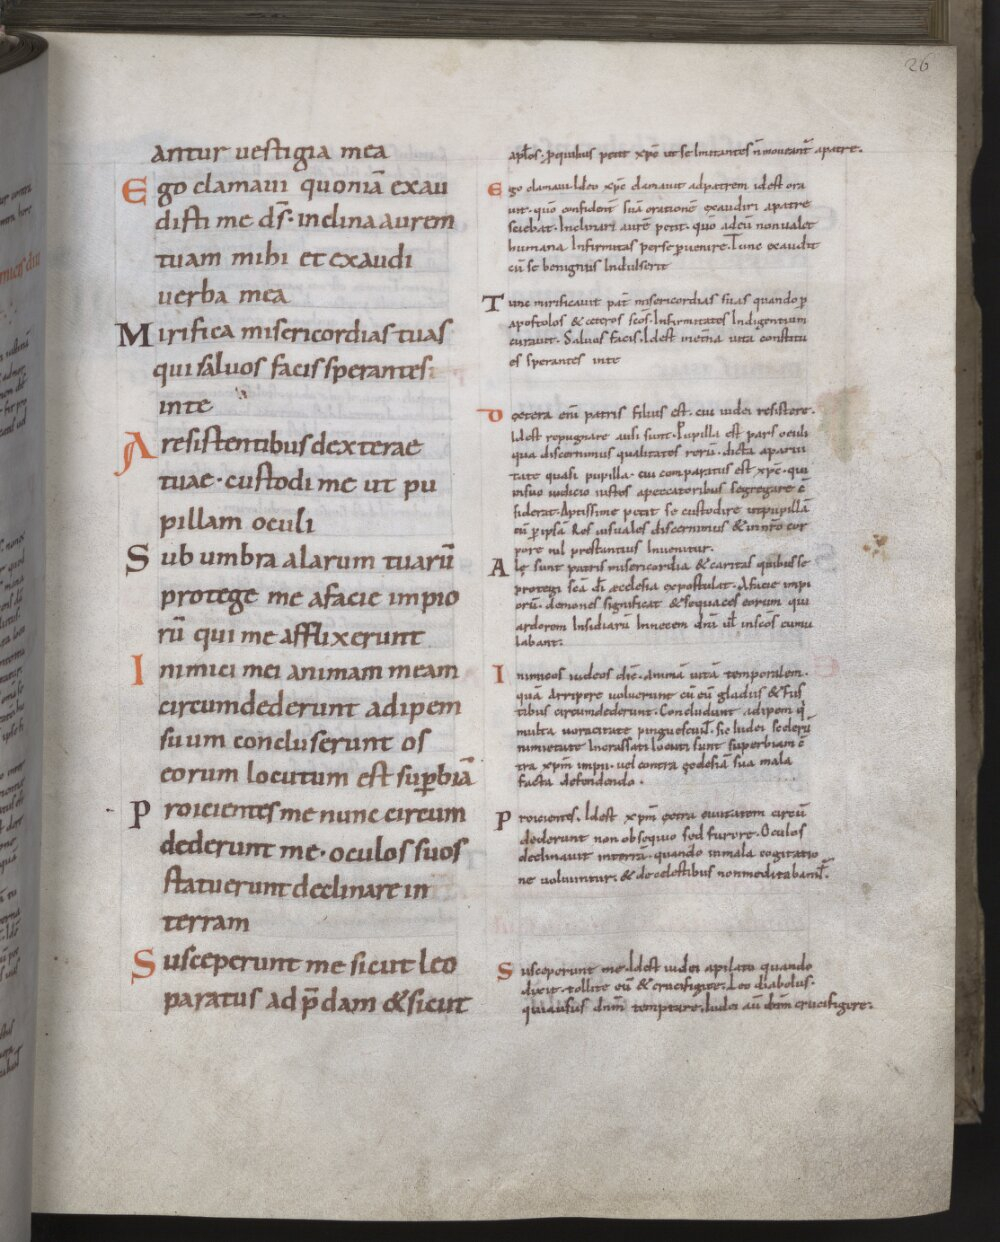 26
antur uestigia mea
Ego clamaui quoniā exau
disti me ds̄· inclina aurem
tuam mihi et exaudi
uerba mea
Mirifica misericordias tuas
qui saluos facis sperantes
in te
A resistentibus dexterae
tuae· custodi me ut pu
pillam oculi
Sub umbra alarum tuarū
protege me a facie impio
rū qui me afflixerunt
Inimici mei animam meam
circumdederunt adipem
suum concluserunt os
eorum locutum est sup̄biā
Proicientes me nunc circum
dederunt me· oculos suos
statuerunt declinare in
terram
Susceperunt me sicut leo
paratus ad p̄dam & sicut
petit xp̄c ut se Imitantes n̄ moueant̄ a patre.
Ego clamaui. Ideo xp̄c clamauit ad patrem idest ora
uit· quō confident̄ suā orationē ęxaudiri a patre
sciebat. Inclinari aurē petit· quō ad eū non ualet
humana Infirmitas per se p̄uenire. Tunc exaudit
cū se benignus Indulserit
Tunc mirificauit pat̄ misericordias suas quando p̄
apostolos & cęteros sc̄os. Infirmitates Indigentium
curauit. Saluos facis. Idest in ęt̄na uita constitu
es sperantes in te
Dęxtera eni patris filius est. cui iudei resistere.
Idest repugnare ausi sunt. Pupilla est pars oculi
qua discernimus qualitates rerū. dicta a paruı
tate quasi pupilla. cui comparatus est xp̄c. qui
in suo iudicio iustos a peccatoribus segregare c̄
siderat. Aptissime petit se custodire ut pupillā
cū p̄ ipsā Res uisuales discernimus & in nr̄o cor
pore nil prestantius Inuenitur.
Alę sunt patris misericordia & caritas quibus se
protegi sc̄a dī ęcclesia ęxpostulat. A facie impi
orū. demones significat & sequaces eorum qui
ardorem Insidiarū In necem dn̄i ul̄ in sc̄os cumu
labant.
Inimicos iudeos dic̄. Animā uitā temporalem.
quā Arripere uoluerunt cū eū gladiis & Fus
tibus circumdederunt. Concludunt adipem q̄
multa uoracitate pinguescunt̄. sic Iudei scelerū
nimietate Incrassati locuti sunt superbiam c̄
tra xp̄m impii. uel contra ęclesiā sua mala
facta defendendo.
Proicientes. Idest xp̄m ęxtra ciuitatem circū
dederunt non obsequio sed furore. Oculos
declinauit in terrā. quando in mala cogitatio
ne uoluuntur. & de celestibus non meditabant̄.
Susceperunt me. Idest iudei a pilato quando
dixit. tollite eū & crucifigite. Leo diabolus.
qui ausus dn̄m temptare. Iudei aū dn̄m crucifigere.